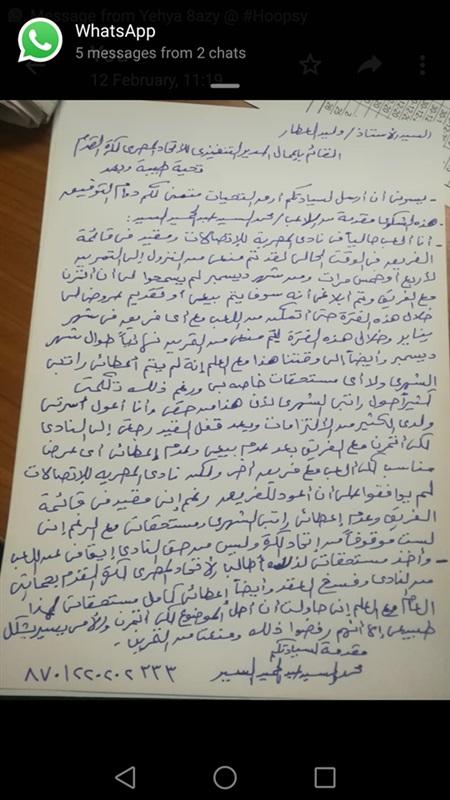 Message from Yehya 8azy @ #Hoopsy
WhatsApp
5 messages from 2 chats
You
12 February, 11:19
السيد الأستاذ / وليد العطار
القائم بأعمال المدير التنفيذى للاتحاد المصرى لكرة القدم
تحية طيبة وبعد
- يسرنى أن أرسل لسيادتكم أرق التحيات متمنى لكم دوام التوفيق
- هذه الشكوى مقدمة من اللاعب / محمد السيد عبد الحميد السيد :
- أنا ألعب حالياً فى نادى المصرية للإتصالات ومقيد فى قائمة
الفريق فى الوقت الحالى لقد تم منعى من النزول إلى التمرين
لأربع أو خمس مرات ومن شهر ديسمبر لم يسمحوا لى أن أتمرن
مع الفريق وتم إبلاغى أنه سوف يتم بيعى أو تقديم عروض لى
خلال هذه الفترة حتى أتمكن من اللعب مع أى فريق فى شهر
يناير وخلال هذه الفترة تم منعى من التمرين نهائياً طوال شهر
ديسمبر وأيضاً إلى وقتنا هذا مع العلم إنه لم يتم إعطائى راتبى
الشهرى ولا أى مستحقات خاصه بى ورغم ذلك تكلمت
كثيراً حول راتبى الشهرى لأن هذا من حقى وأنا أعول أسرتى
ولدى الكثير من الألتزامات وبعد قفل القيد رجعت إلى النادى
لكى أتمرن مع الفريق بعد عدم بيعى وعدم إعطائى أى عرض
مناسب لكى ألعب مع فريق أخر ولكن نادى المصرية للإتصالات
لم يوافقوا على أن أعود للفريق رغم إنى مقيد فى قائمة
الفريق وعدم إعطائى راتبى الشهرى ومستحقاتى مع الرغم إنى
لست موقوفاً من إتحاد الكرة وليس من حق النادى إيقافى عن اللعب
- وأخذ مستحقاتى لذلك أطالب الأتحاد المصرى لكرة القدم بحمايتى
من النادى وفسخ العقد وأيضاً إعطائى كامل مستحقاتى لهذا
العام مع العلم إنى حاولت أن أحل الموضوع لكى أتمرن والأمر يسير بشكل
طبيعى إلا أنهم رفضوا ذلك ومنعت من التمرين .
مقدمة لسيادتكم
محمد السيد عبد الحميد السيد
٨٧٠١٢٢٠٢٠٢٣٣٣